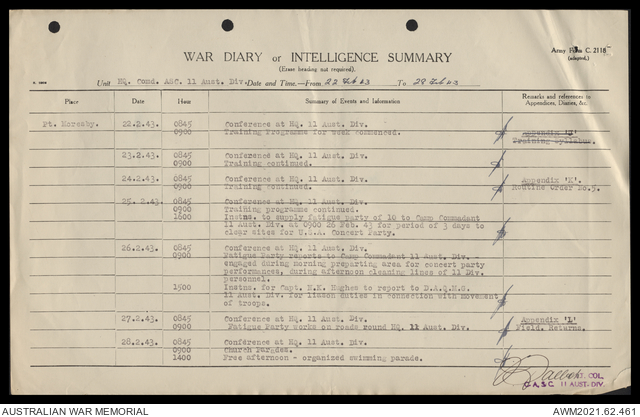 Army Form C. 2118
(adapted.)
WAR DIARY or INTELLIGENCE SUMMARY
(Erase heading not required).
Unit HQ. Comd. ASC. 11 Aust. Div. Date and Time.—From 22 Feb 43 To 28 Feb 43
Place Date Hour Summary of Events and Information Remarks and references to Appendices, Diaries, &c.
Pt. Moresby. 22.2.43. 0845 Conference at HQ. 11 Aust. Div.
0900 Training Programme for week commenced. Appendix 'J'
Training Syllabus.
23.2.43. 0845 Conference at HQ. 11 Aust. Div.
0900 Training continued.
24.2.43. 0845 Conference at HQ. 11 Aust. Div. Appendix 'K'
0900 Training continued. Routine Order No.5.
25.2.43. 0845 Conference at HQ. 11 Aust. Div.
0900 Training programme continued.
1600 Instns. to supply fatigue party of 10 to Camp Commandant
11 Aust. Div. at 0900 26 Feb. 43 for period of 3 days to
clear sites for U.S.A. Concert Party.
26.2.43. 0845 Conference at HQ. 11 Aust. Div.
0900 Fatigue Party reports to Camp Commandant 11 Aust. Div. -
engaged during morning preparting area for concert party
performances, during afternoon cleaning lines of 11 Div.
personnel.
1500 Instns. for Capt. N.K. Hughes to report to D.A.Q.M.G.
11 Aust. Div. for liason duties in connection with movement
of troops.
27.2.43. 0845 Conference at HQ. 11 Aust. Div. Appendix 'L'
0900 Fatigue Party works on roads round HQ. 11 Aust. Div. Field Returns.
28.2.43. 0845 Conference at HQ. 11 Aust. Div.
0900 Church Parades.
1400 Free afternoon - organized swimming parade.
COL.
A.S.C. 11 AUST. DIV.
AUSTRALIAN WAR MEMORIAL AWM2021.62.461